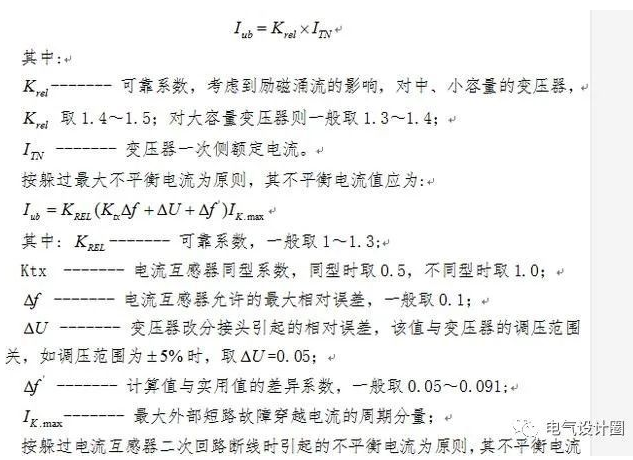 I_ub = K_rel × I_TN
其中:
K_rel ------- 可靠系数，考虑到励磁涌流的影响，对中、小容量的变压器，
K_rel 取 1.4～1.5；对大容量变压器则一般取 1.3～1.4；
I_TN ------- 变压器一次侧额定电流。
按躲过最大不平衡电流为原则，其不平衡电流值应为:
I_ub = K_REL(K_tx Δf + ΔU + Δf')I_K.max
其中: K_REL ------- 可靠系数，一般取 1～1.3;
Ktx ------- 电流互感器同型系数，同型时取 0.5，不同型时取 1.0;
Δf ------- 电流互感器允许的最大相对误差，一般取 0.1;
ΔU ------- 变压器改分接头引起的相对误差，该值与变压器的调压范围
关，如调压范围为 ±5% 时，取 ΔU=0.05;
Δf' ------- 计算值与实用值的差异系数，一般取 0.05～0.091;
I_K.max ------- 最大外部短路故障穿越电流的周期分量；
按躲过电流互感器二次回路断线时引起的不平衡电流为原则，其不平衡电流
电气设计圈